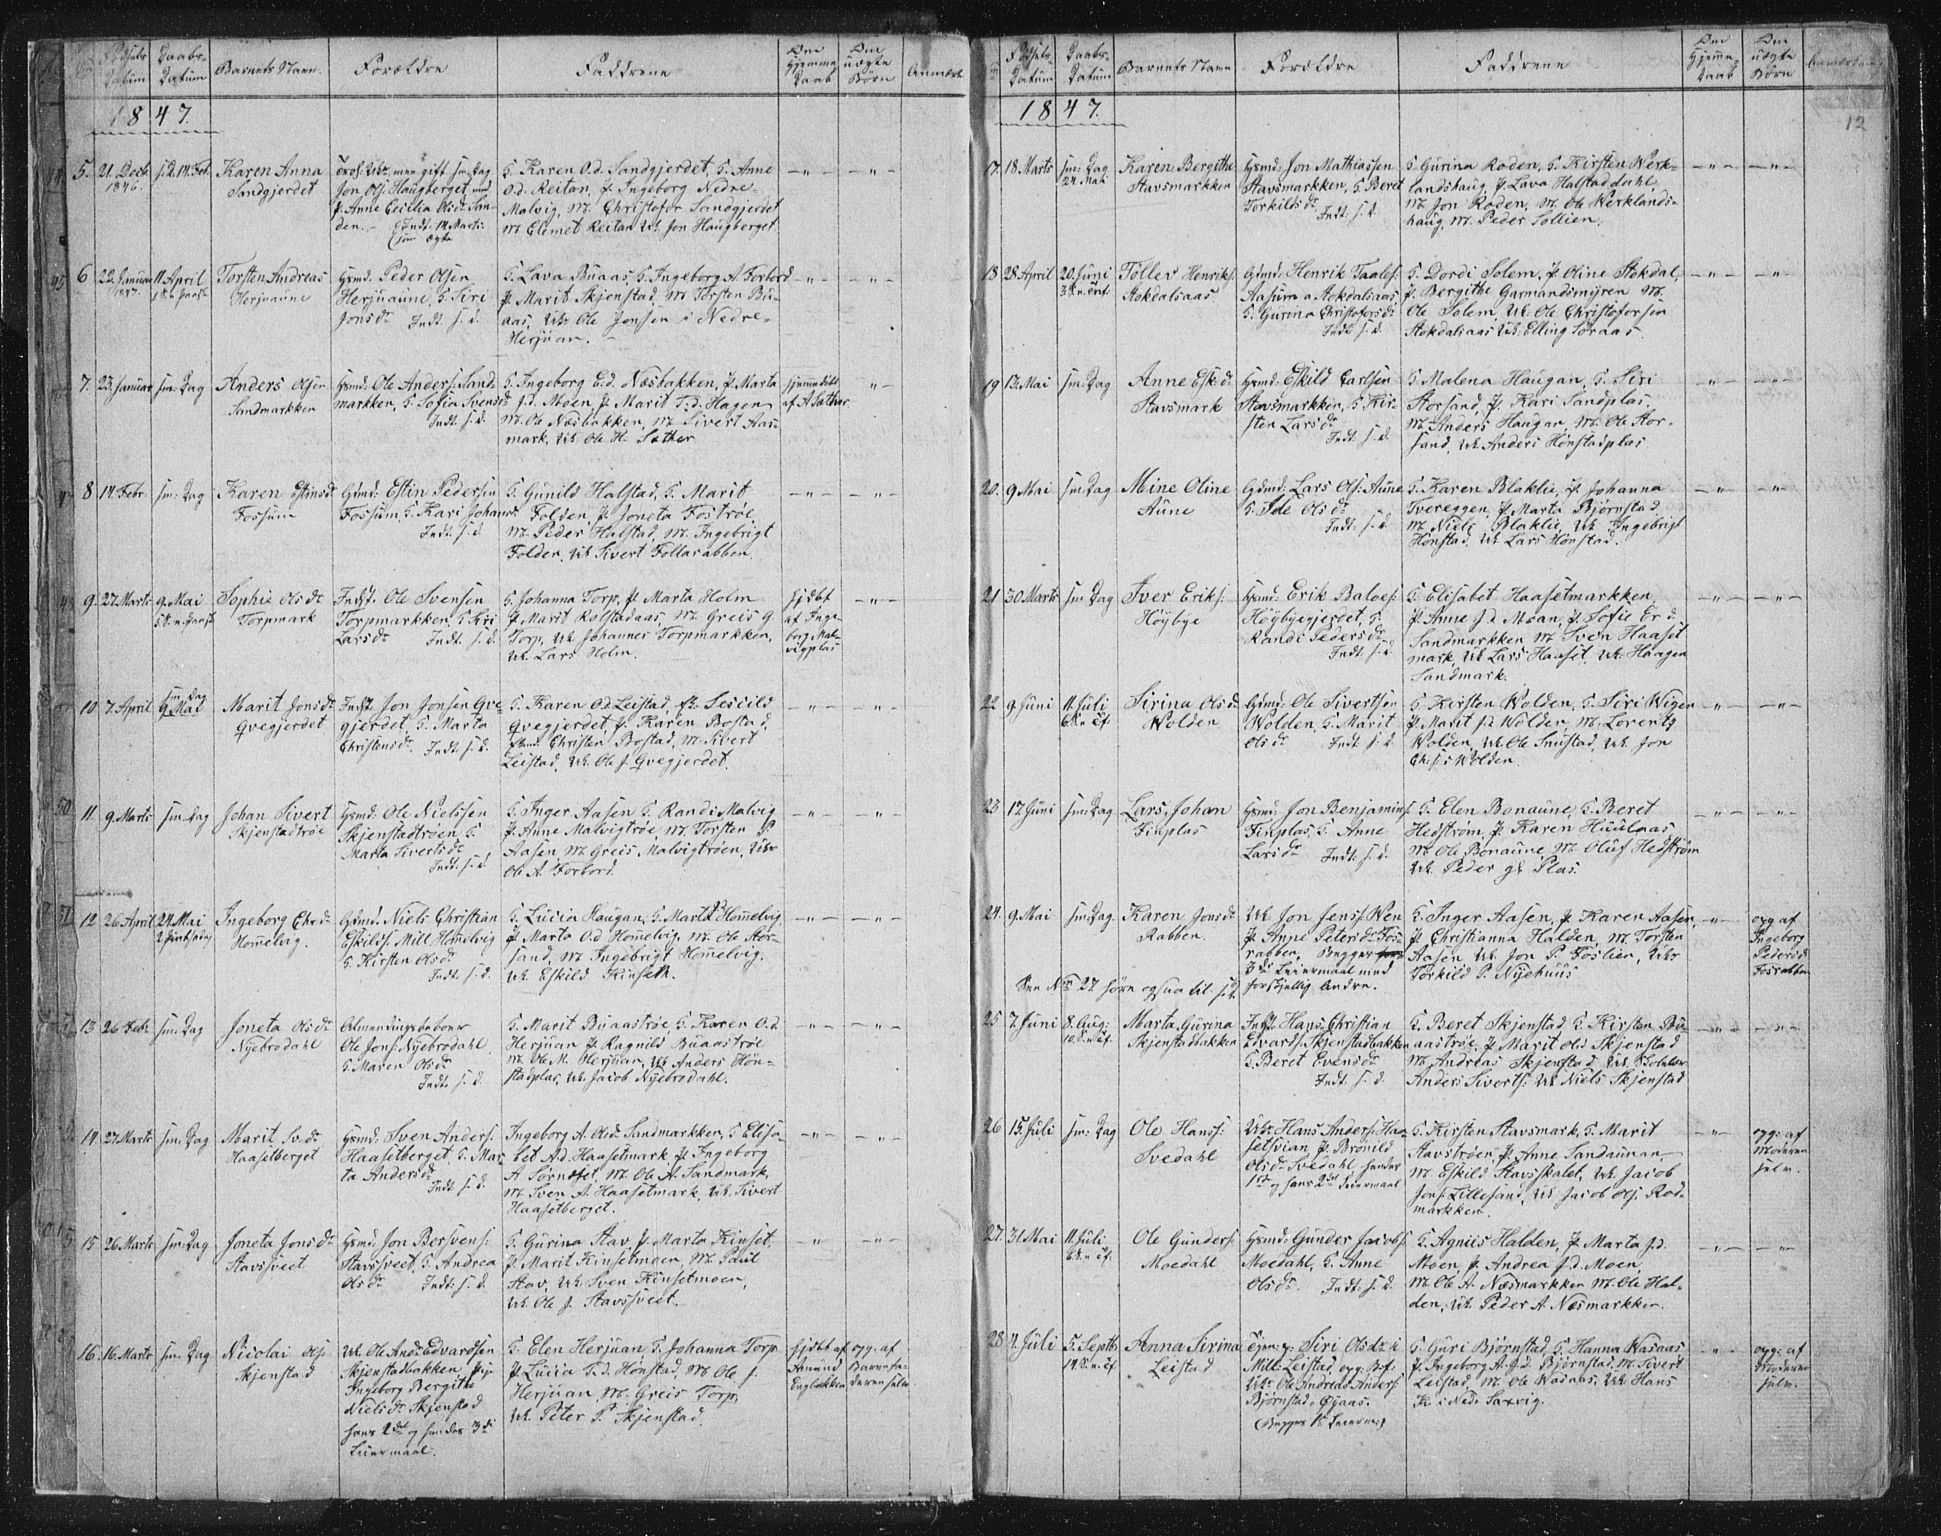 Fødsels Datum
Daabs-Datum
Barnets Navn.
Forældre
Faddrene
Om Hjemme Daab
Om uægte Børn
Anmærk
1847.
5. 21. Decb. 1846. s.D. 14. Feb.
Karen Anna
Sandgjerdet
Jon Ols. Haugberget, med
P. Anne Cecilia Olsdr San-
den.
G. Karen O.d. Sandgjerdet, G. Anne
O.d. Reitan, P. Ingeborg Nedre-
Malvig, M. Christofer Sandgjerdet
M. Elimet Reitan Uk. Jon Haugberget
6 22. Januar 1847. 11. April
Torsten Andreas
Herjuaune
Gsmd. Peder Olsen
Herjuaune, G. Siri
Jonsdr Indt. s.d.
G. Lava Buaas, G. Ingeborg A Forbord
P. Marit Skjenstad, M. Torsten Bu-
aas, Uk. Ole Jensen i Nedre-
Herjuan.
7. 23. Januar sm: Dag
Anders Olsen
Sandmarkken
Gsmd. Ole Anders. Sand-
markken, G. Sofia Svensdr
Indt. s.d.
G. Ingeborg E.d. Næsbakken, P. Marta
J.d. Moen, P. Marit T.d. Hagen
M. Ole Næsbakken, M. Sivert Aas-
mark, Uk. Ole H. Sæther
hjemmedøbt
af A Sæther
8 14. Febr. sm: Dag
Karen Estinsdr
Fossum
Gdmd: Estin Pedersen
Fossum, G. Kari Johansdr
Indt. s.d.
G. Gunild Halstad, G. Marit
Folden, P. Joneta Fostrøe
M. Peder Halstad, M. Ingebrigt
Folden, Uk. Sivert Follarabben.
9. 27. Marts 9. Mai
Sophie Olsdr
Torpmark
Indst. Ole Svensen
Torpmarkken, G. Kri
Larsdr Indt. s.d.
G. Johanna Torp, P. Marta Holm
P. Marit Rolstadaas, M. Greis G.
Torp, Uk. Johannes Torpmarkken,
Uk. Lars Holm.
hjdbt
af Inge-
borg Mal-
vigplas
10. 7. April sm: Dag 9 Mai
Marit Jonsdr
Qvegjerdet
Indst. Jon Jonsen Qve-
gjerdet, G. Marta
Christensdr. Indt. s.d.
G. Karen O.d. Leistad, P. Sescild
Qvegjerdet, P. Karen Bostad,
Christen Bostad, M. Sivert
Leistad, Uk. Ole J. Qvegjerdet.
11. 9. Marts sm: Dag
Johan Sivert
Skjenstadtrøe
Gsmd. Ole Nielssen
Skjenstadtrøen, G.
Marta Sivertsdr
Indt. s.d.
G. Inger Aasen, G. Randi Malvig
P. Anne Malvigtrøe, M. Torsten P
Aasen M. Greis Malvigtrøen, Uk.
Ole A. Forbord.
12. 26 April 24. Mai 2 Pintsedag
Ingeborg
Hommelvig.
Gdmd. Niels Christian
Eskilds. Mill. Hommelvig
G. Kirsten Olsdr
Indt. s.d.
G. Lucia Haugan, G. Marta Hommelvig
P. Marta O.d. Hommelvig, M. Ole Stor-
sand, M. Ingebrigt Hommelvig.
Uk. Eskild Kinseth.
13 26 Febr sm: Dag
Joneta Olsdr
Nyebrodahl
Almendingsbeboer
Ole Jons. Nyebrodahl
G. Maren Olsdr
Indt. s.d.
G. Marit Buaastrøe, G. Karen O.d.
Herjuan P. Ragnild Buaastrøe
M. Ole M. Herjuan, Uk. Anders Høn-
stadplas, Uk. Jacob Nyebrodahl.
14. 27. Marts sm: Dag
Marit Sv.dr
Haasetberget
Gsmd. Sven Anders.
Haasetberget, G. Mar-
ta Andersdr
Indt. s.d.
Ingeborg A. Olsdr Sandmarkken, G. Elisa-
bet A.d. Haasetmark P. Ingeborg
A Sørndset, M. Ole A. Sandmark,
M. Sven A. Haasetmark, Uk. Sivert
Haasetberget.
15 26 Marts sm: Dag
Joneta Jonsdr
Stavsveet
Gsmd. Jon Bersvens.
Stavsveet, G. Andrea
Olsdr Indt. s.d.
G. Gurina Stav, P. Marta Kinset
P. Marit Kinsetmoen, M. Paul
Stav, Uk. Sven Kinsetmoen,
Uk. Ole J. Stavsveet.
16. 16. Marts sm: Dag
Nicolai Ols.
Skjenstad
Uk. Ole Ands Edvardsen
Skjenstadbakken, Pig.
Ingeborg Bergitha
Nielsdr Skjenstad
hans 2det og hendes 3di
Leiermaal.
G. Elen Herjuan, G. Johanna Torp
P. Lucia T.d. Hønstad, M. Ole J.
Herjuan, M. Greis Torp,
Uk. Peter P. Skjenstad.
hjdbt af
Amund
Engbakken
opg. af
Barnefa-
deren selv.
Fødsels Datum
Daabs-Datum
Barnets Navn
Forældre
Faddrene
Om Hjemme-Daab
Om uægte Børn
12
1847.
17. 18 Marts sm: Dag 24. Mai
Karen Bergithe
Stavsmarkken
Gsmd: Jon Mathiassen
Stavsmarkken, G. Beret
Torkildsdr Indt. s.d.
G. Gurina Roden, G. Kirsten Werk-
landshaug, P. Lava Halstaddahl,
M. Jon Roden, M. Ole Werklands-
haug, M. Peder Sollien.
18. 28. April 20. Juni
Tollev Henriks.
Stokdalsaas
Gdmd: Henrik Taales.
Aasum a. Stokdalsaas,
G. Gurina Christofersdr
Indt. s.d.
G. Dordi Solem, P. Oline Stokdal,
P. Bergithe Garmandsmyren M.
Ole Solem, Uk. Ole Christofersen
Stokdalsaas Uk. Elling Soraas.
19 13. Mai sm: Dag
Anne Esk.dr
Stavsmark
Gsmd: Eskild Carlsen
Stavsmarkken, G. Kir-
sten Larsdr
Indt. s.d.
G. Malena Haugan, G. Siri
Storsand, P. Kari Sandplas,
M. Anders Haugan, M. Ole Stor-
sand, Uk. Anders Hønstadplas
20. 9 Mai sm: Dag
Mine Oline
Aune
Gdmd: Lars Ols. Aune
G. Ide Olsdr
Indt. s.d.
G. Karen Blaklie, P. Johanna
Tvereggen, P. Marta Bjørnstad
M. Niels Blaklie, Uk. Ingebrigt
Hønstad, Uk. Lars Hønstad.
21 30 Marts sm: Dag
Iver Eriks.
Høybye
Gsmd. Erik Baloes.
Høybyegjerdet, G.
Randi Pedersdr
Indt. s.d.
G. Elisabet Haasetmarkken,
P. Anne J.d. Moan, P. Sofie Er.d.
Sandmarkken M. Sven Haaset
mark, Uk. Lars Haaset, Uk. Haagen
Sandmark.
22 9 Juni 11. Juli
Sirina Olsdr
Wolden
Gdmd: Ole Sivertsen
Wolden, G. Marit
Olsdr Indt. s.d.
G. Kirsten Wolden, G. Siri Wigen
P. Marit J.d. Wolden, M. Lorents
Wolden, Uk. Ole Snustad, Uk. Jon
Ch.s. i Wolden.
23 17. Juni sm: Dag
Lars Johan
Finplas
Gsmd: Jon Benjamins.
Finplas, G. Anne
Larsdr Indt. s.d.
G. Elen Bonaune, G. Beret
Hedstrøm, P. Karen Huulaas
M. Ole Bonaune, M. Oluf Hedstrøm
Uk. Peder gl Plas.
24. 9. Mai sm: Dag
Karen Jonsdr
Rabben.
Uk. Jon Jens. Wen
P. Anne Petersdr Fos-
rabben. Begges
3di Leiermaal med
forskjellig Andre.
G. Inger Aasen, P. Karen Aasen,
P. Christianna Halden, M. Torsten
Aasen, Uk. Jon P. Foslien, Uk.
Torkild P. Nyehuus
opg af
Ingeborg
Pedersdr
Fosrabben
Den No 27 hører ogsaa til s.d.
25 7. Juni 8. Aug:
Marta Gurina
Skjenstadbakken
Indst. Hans Christian
Edvards. Skjenstadbakken
G. Beret Evensdr
Indt. s.d.
G. Beret Skjenstad, G. Kirsten Bu-
aastrøe, P. Marit Olsd Skjenstad
M. Andreas Skjenstad, Uk.
Anders Siverts. Uk. Niels Skjenstad
26 15. Juli sm: Dag
Ole Hans.
Svedahl
Uk. Hans Anders. Haa-
setsvian, P. Brønild
Olsdr Svedahl hendes
1ste og hans 2det Leiermaal
G. Kirsten Stavsmark, G. Marit
Stavstrøen, P. Anne Sandaunan,
M. Eskild Stavsskalet, Uk. Jacob
Jons. Lillesand, Uk. Jacob Ols. Rod-
markken.
opg: af
Moderen
selv.
27. 31. Mai 11. Juli
Ole Gunders.
Moedahl
Gsmd: Gunder Jacobs.
Moedahl, G. Anne
Olsdr. Indt. s.d.
G. Agniis Halden, P. Marta J.d.
Moen, P. Andrea J.d. Moen,
M. Ole A. Næsmarkken M. Ole Hal-
den, Uk. Peder A. Næsmarkken.
28 4. Juli 5. Septb.
Anna Sirina
Leistad
Siri Olsdr i
Mill. Leistad, opg. B.f.
Uk. Ole Andreas Anders.
Bjørnstad, Øjaas.
(Begges 1ste Leierm.)
G. Guri Bjørnstad, G. Hanna Wasaas
P. Ingeborg A.d. Bjørnstad, M. Sivert
Leistad, M. Ole Wasaas, Uk. Hans
K. i Nedr Saxvig.
opg: af
Moderen
selv.